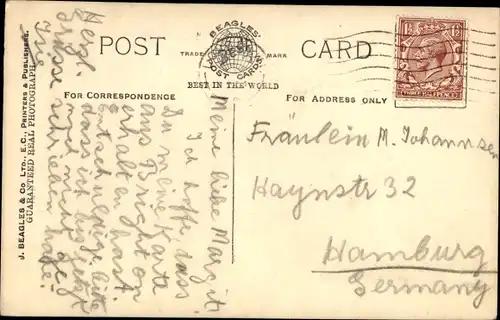 POST CARD
BEAGLES'
POST CARDS
TRADE MARK
BEST IN THE WORLD
FOR CORRESPONDENCE
FOR ADDRESS ONLY
J. BEAGLES & CO. LTD., E.C., PRINTERS & PUBLISHERS.
GUARANTEED REAL PHOTOGRAPH.
Meine liebe Margit
Ich hoffe dass
Du meine Karte
aus Brighton
erhalten hast.
Entschuldige bitte
dass ich bis jetzt
noch nicht ge-
schrieben habe!
Herzl.
Grüsse
Fräulein M. Johannsen
Haynstr 32
Hamburg
Germany